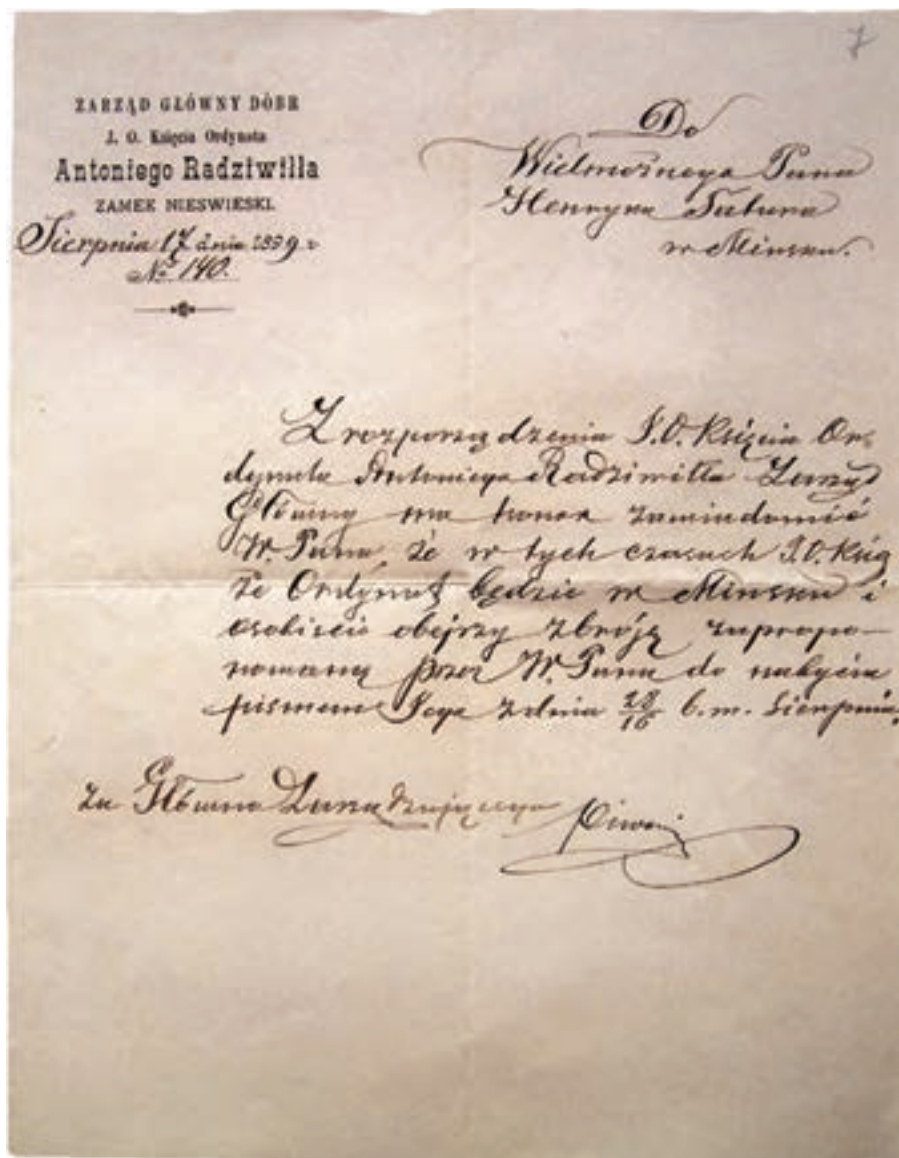 7
ZARZĄD GŁÓWNY DÓBR
J. O. Księcia Ordynata
Antoniego Radziwiłła
ZAMEK NIESWIESKI.
Sierpnia 17 dnia 1899 r.
№ 140.
Do
Wielmożnego Pana
Henryka Tatura
w Minsku.
Z rozporządzenia J.O. Księcia Or-
dynata Antoniego Radziwiłła Zarząd
Główny ma honor zawiadomić
W. Pana, że w tych czasach J.O. Ksią
że Ordynat będzie w Minsku i
osobiście obejrzy zbroję zapropo-
nowaną przez W. Pana do nabycia
pismem Jego z dnia 28/16 b.m. Sierpnia.
za Główno Zarządzającego